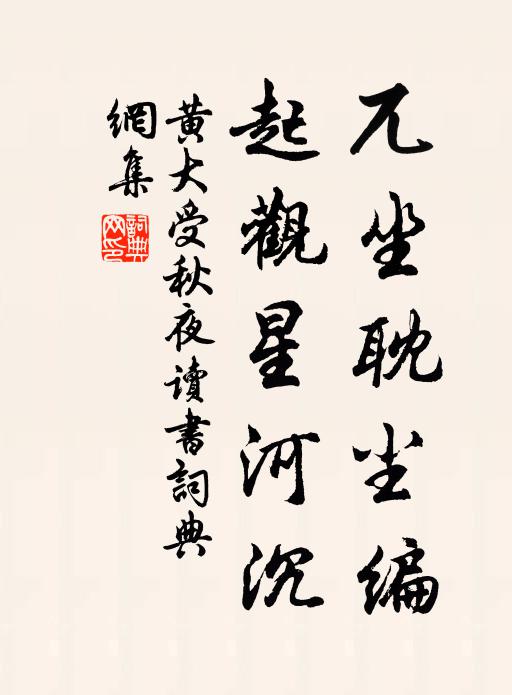 兀坐耽尘编
起觀星河沉
黄大受秋夜讀書詞典
網集
詞典網印